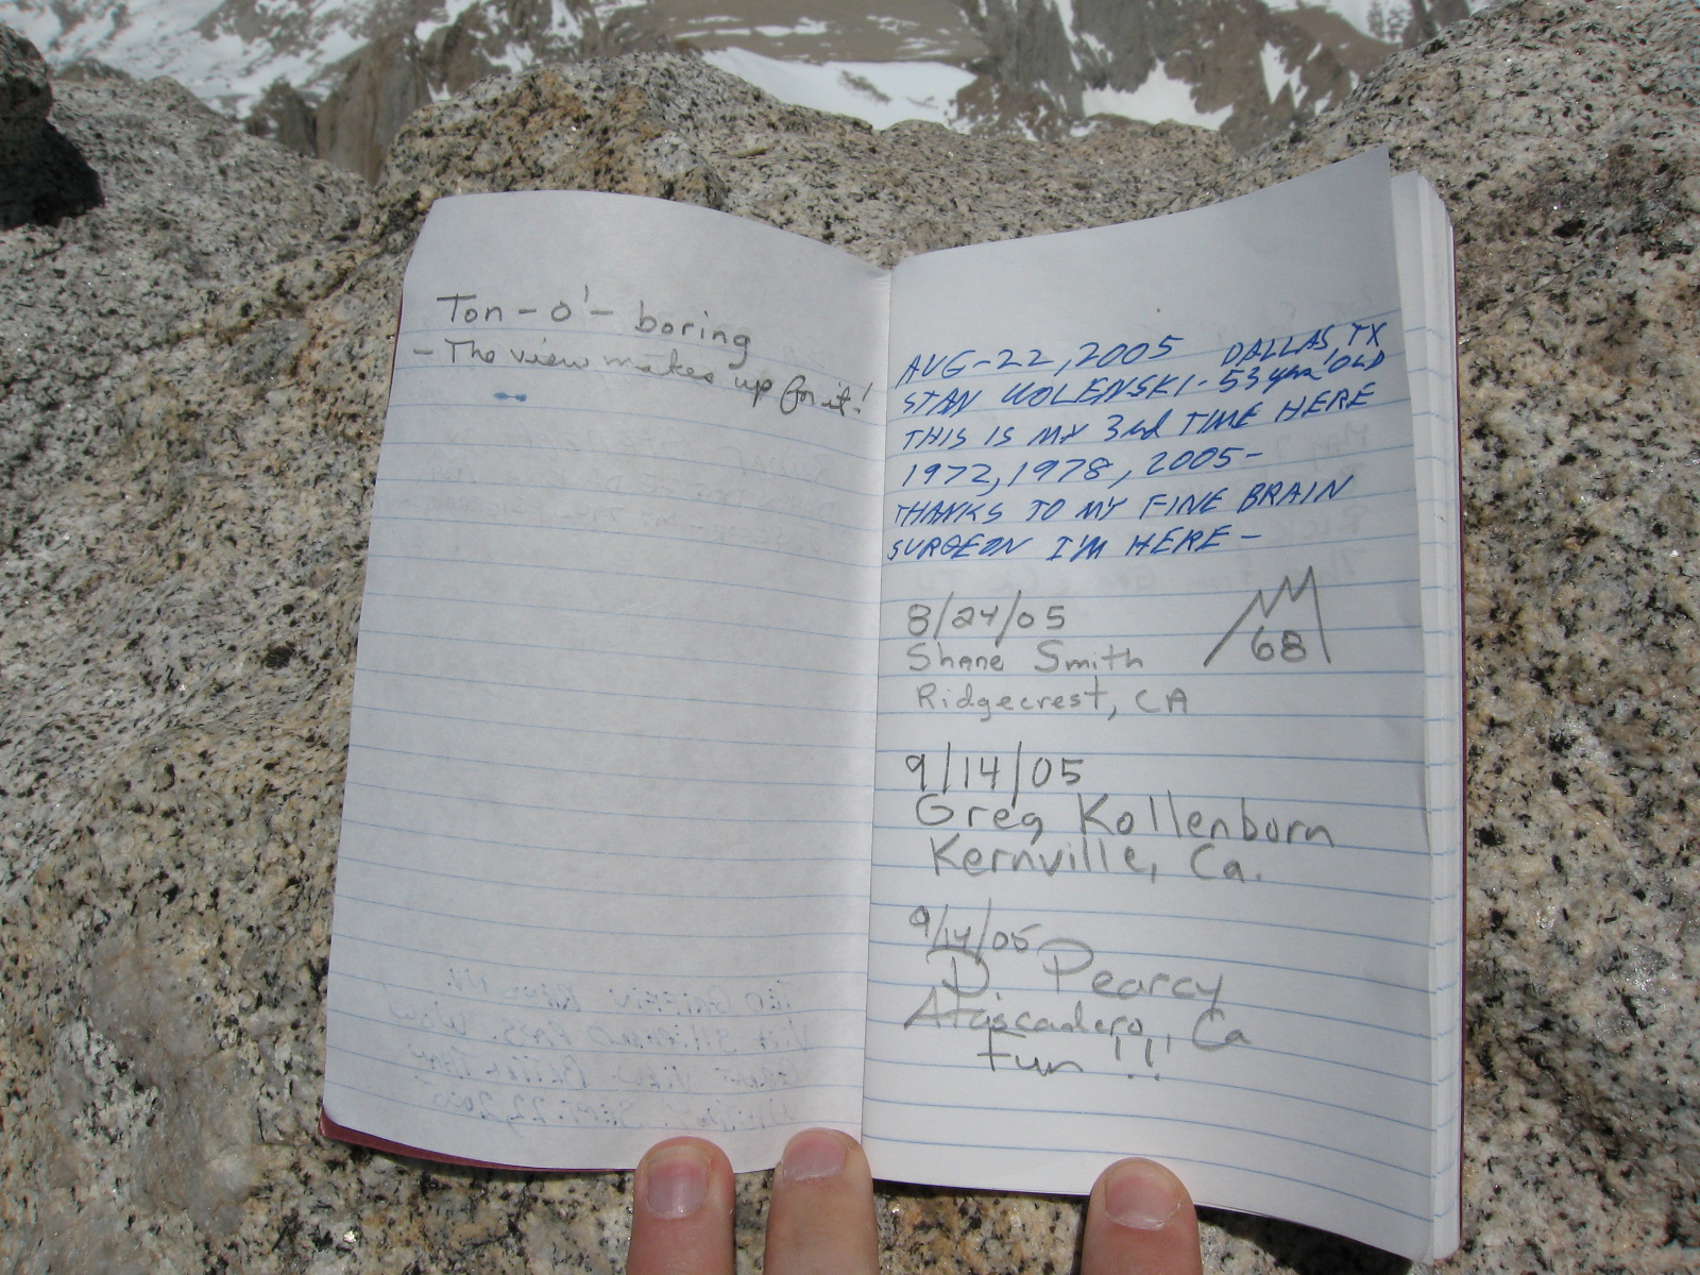 Ton-o'-boring
- The view makes up for it!
AUG-22, 2005 DALLAS, TX
STAN WOLENSKI - 53 yrs OLD
THIS IS MY 3rd TIME HERE
1972, 1978, 2005-
THANKS TO MY FINE BRAIN
SURGEON I'M HERE -
8/24/05
68
Shane Smith
Ridgecrest, CA
9/14/05
Greg Kollenborn
Kernville, Ca.
9/14/05
D. Pearcy
Atascadero, Ca
Fun !!!